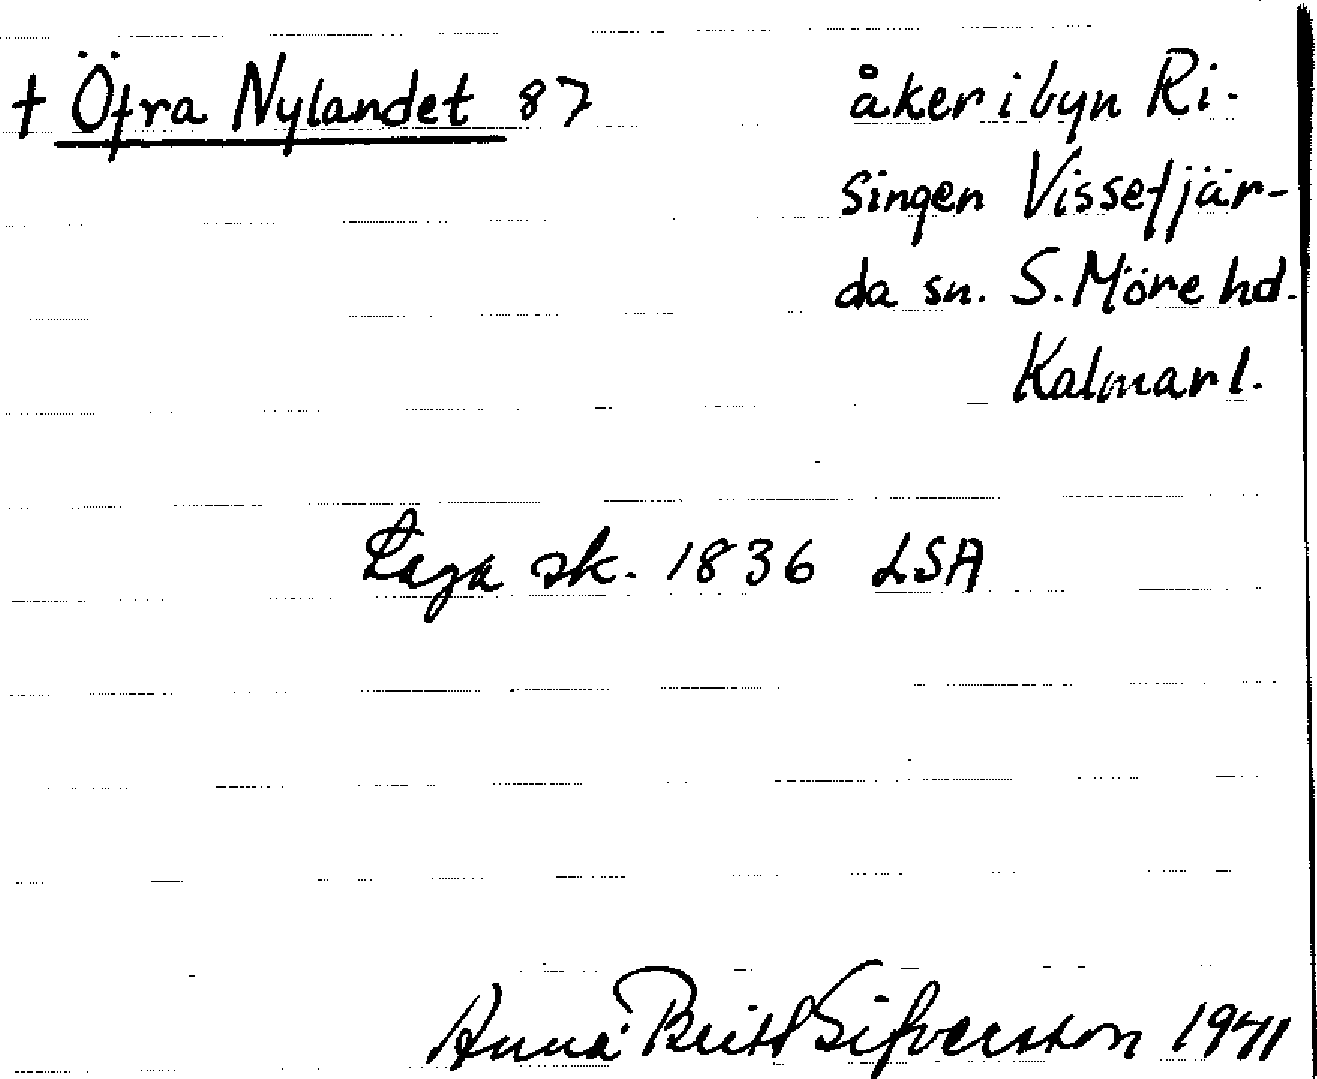 † Öfra Nylandet 87 åker i byn Ri-
singen Vissefjär-
da sn. S. Möre hd.
Kalmar l.
Laga sk. 1836 LSA
Anna Britt Silfverston 1941